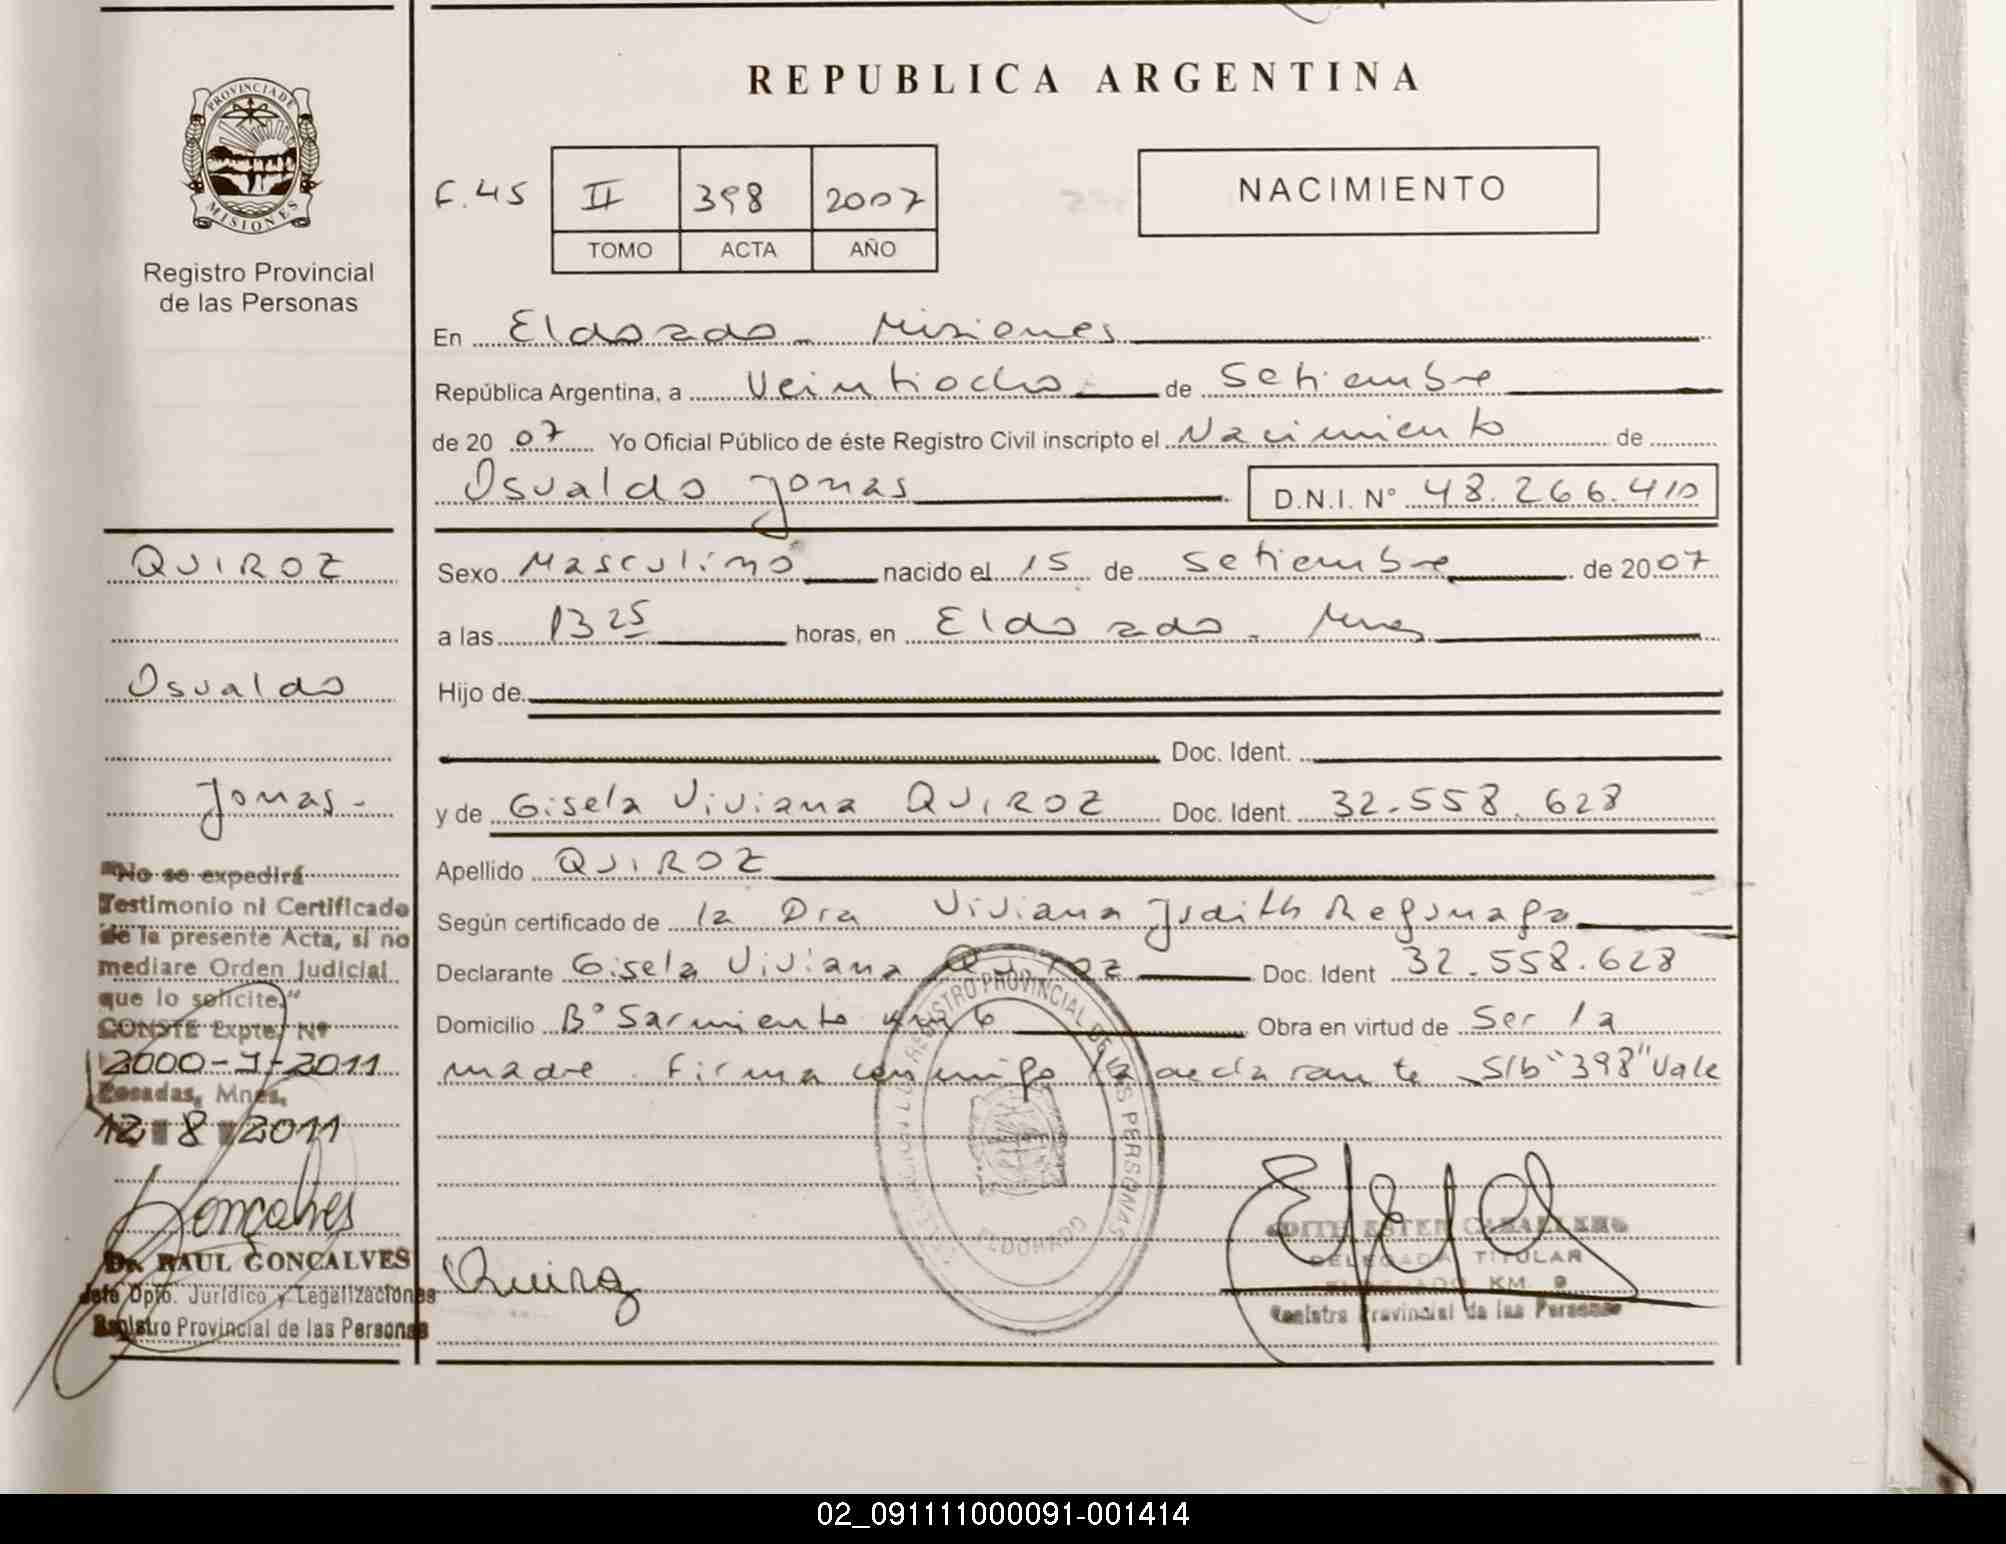 REPUBLICA ARGENTINA
PROVINCIA DE
MISIONES
Registro Provincial
de las Personas
F. 45 II 398 2007
TOMO ACTA AÑO
NACIMIENTO
En Eldorado - Misiones
República Argentina, a Veintiocho de Setiembre
de 2007 Yo Oficial Público de éste Registro Civil inscripto el Nacimiento de
Osvaldo Jonas D.N.I. N° 48.266.410
QUIROZ
Osvaldo
Jonas-
Sexo Masculino nacido el 15 de Setiembre de 2007
a las 13 25 horas, en Eldorado - Mnes
Hijo de
Doc. Ident.
y de Gisela Viviana QUIROZ Doc. Ident. 32.558.628
Apellido QUIROZ
Según certificado de la Dra Viviana Judith
Declarante Gisela Viviana Quiroz Doc. Ident 32.558.628
Domicilio B° Sarmiento Obra en virtud de Ser la
madre. Firma conmigo la declarante S/b "398" Vale
"No se expedirá
Testimonio ni Certificado
de la presente Acta, si no
mediare Orden Judicial
que lo solicite."
CONSTE Expte. Nº
2000-J-2011
Posadas, Mnes.
12 8 2011
Goncalves
Dr. RAUL GONCALVES
Jefe Dpto. Jurídico y Legalizaciones
Registro Provincial de las Personas
Quiroz
REGISTRO PROVINCIAL DE LAS PERSONAS
ELDORADO
EDITH ESTER CABALLERO
DELEGADA TITULAR
ELDORADO KM. 9
Registro Provincial de las Personas
02_091111000091-001414